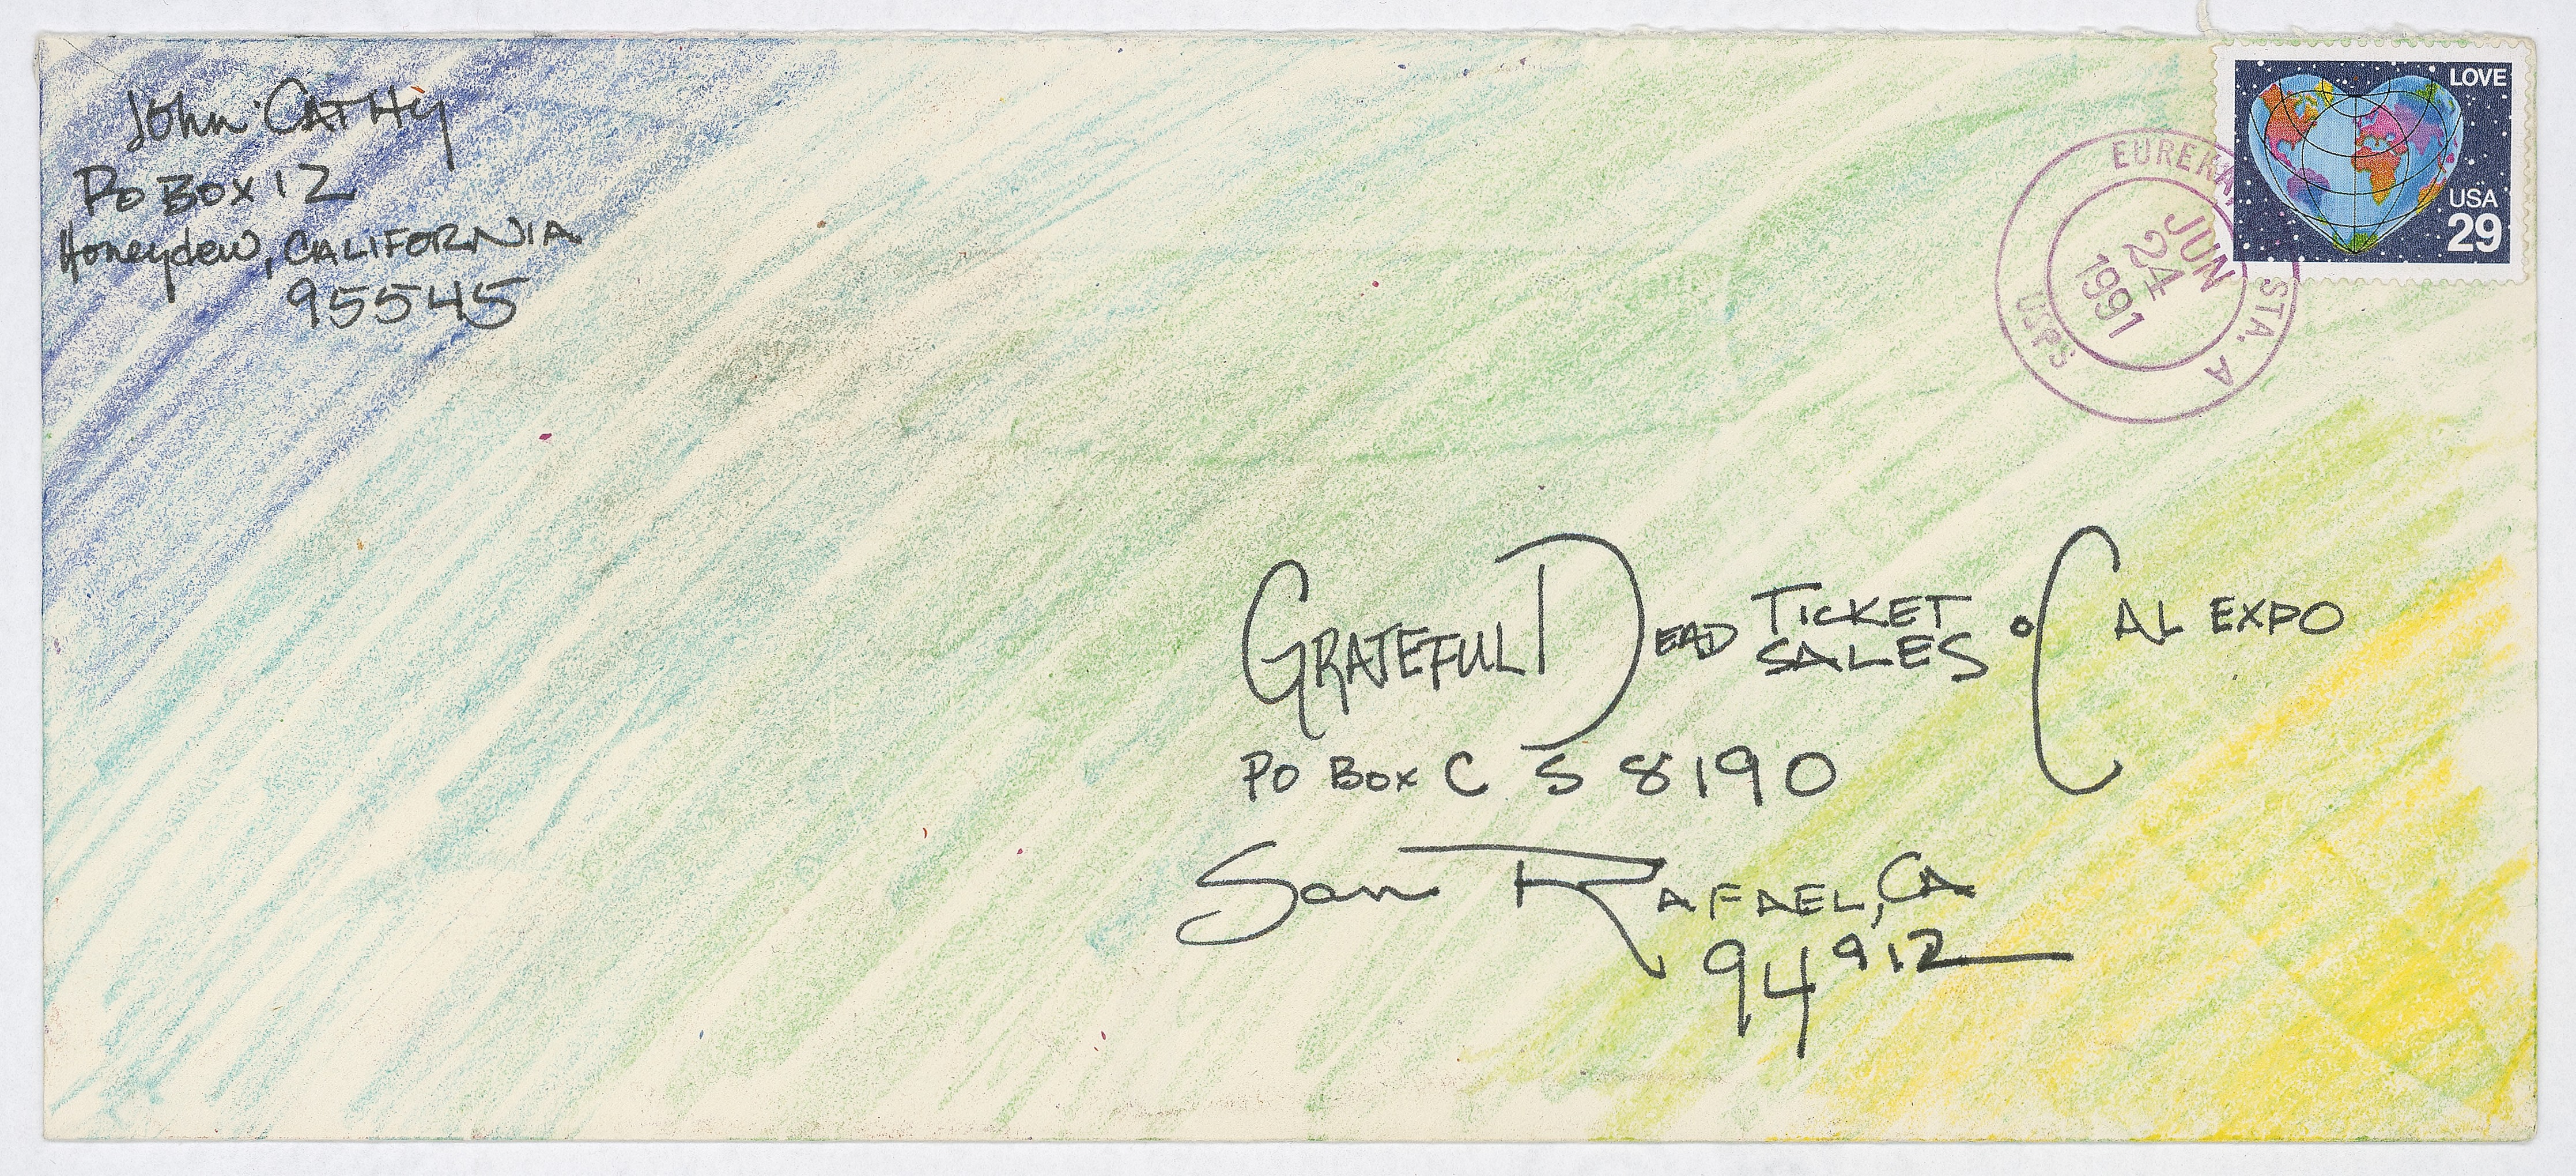 John · CATHY
PO BOX 12
Honeydew, CALIFORNIA
95545
LOVE
USA
29
EUREKA, STA. A
USPS
JUN
24
1991
GRATEFUL DEAD TICKET SALES ∘ CAL EXPO
PO BOX C S 8190
San RAFAEL, CA
94912